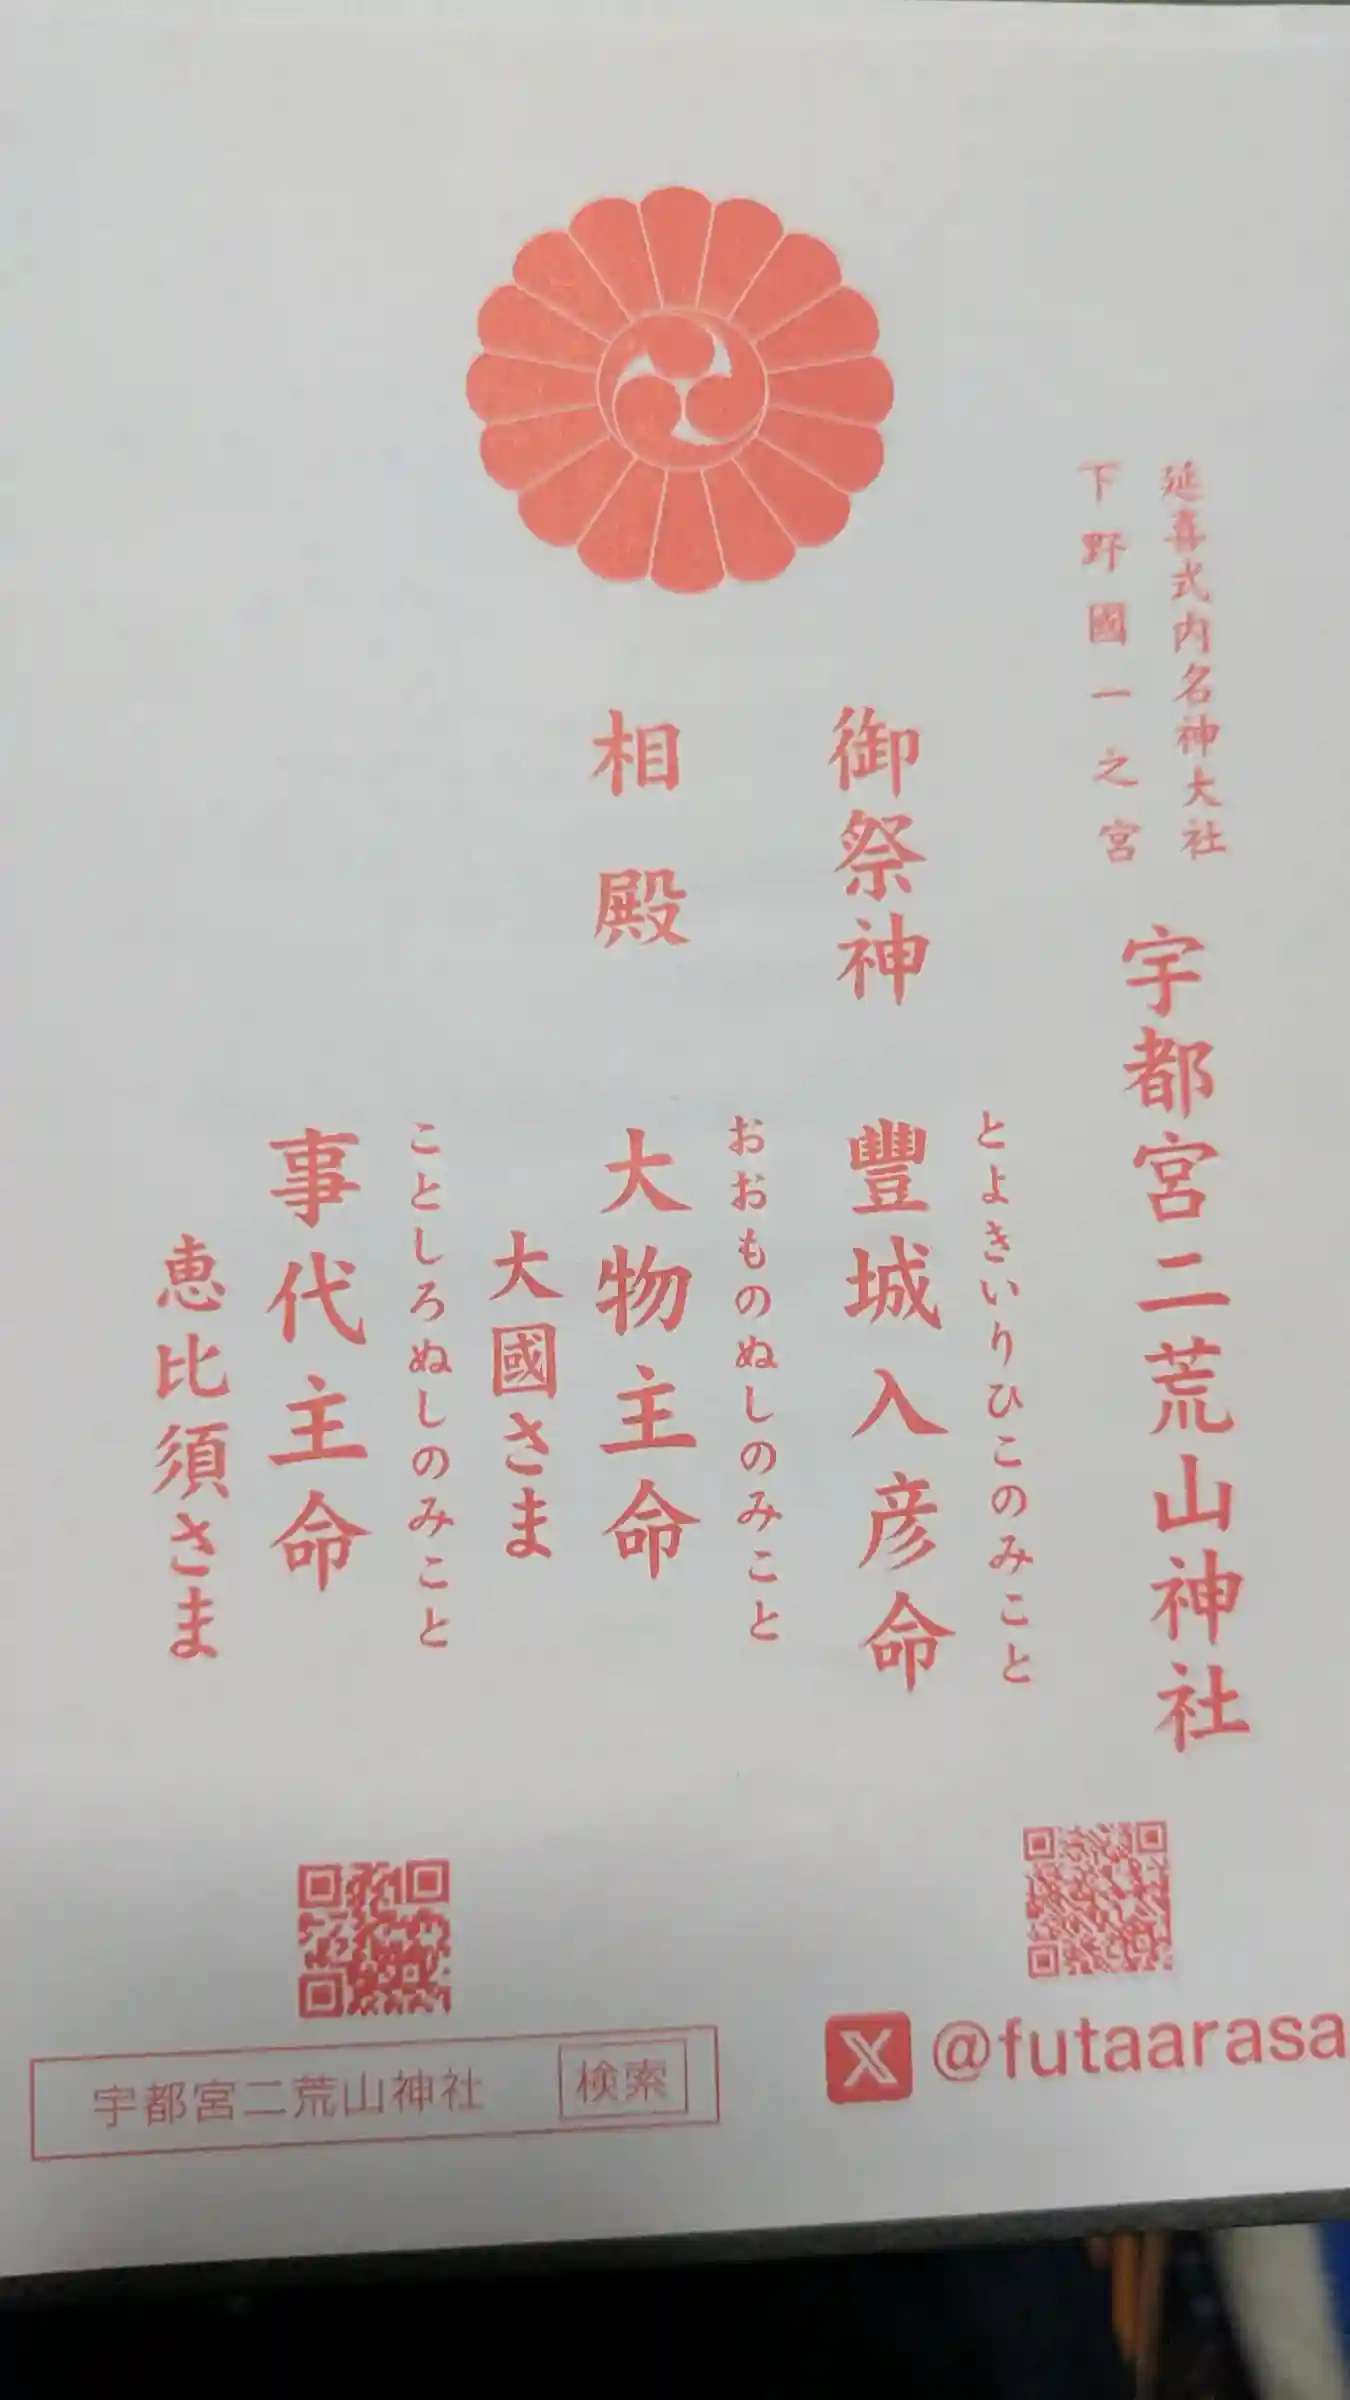 延喜式内名神大社
下野國一之宮
宇都宮二荒山神社
御祭神
とよきいりひこのみこと
豐城入彦命
相殿
おおものぬしのみこと
大物主命
大國さま
ことしろぬしのみこと
事代主命
恵比須さま
@futaarasa
宇都宮二荒山神社 検索